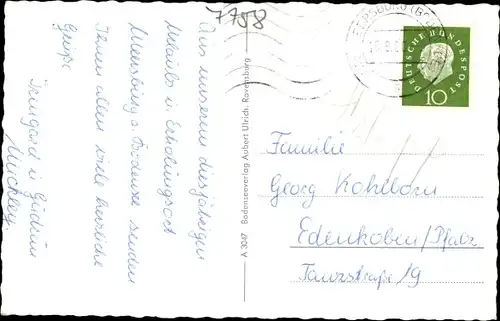 7758
Aus unserem diesjährigen
Urlaubs u. Erholungsort
Meersburg a. Bodensee senden
Ihnen allen viele herzliche
Grüße
Irmgard u. Gudrun
A 3047 Bodenseeverlag Aubert Ulrich, Ravensburg
DEUTSCHE BUNDESPOST
10
Familie
Georg Kohlborn
Edenkoben/Pfalz
Tanzstraße 19